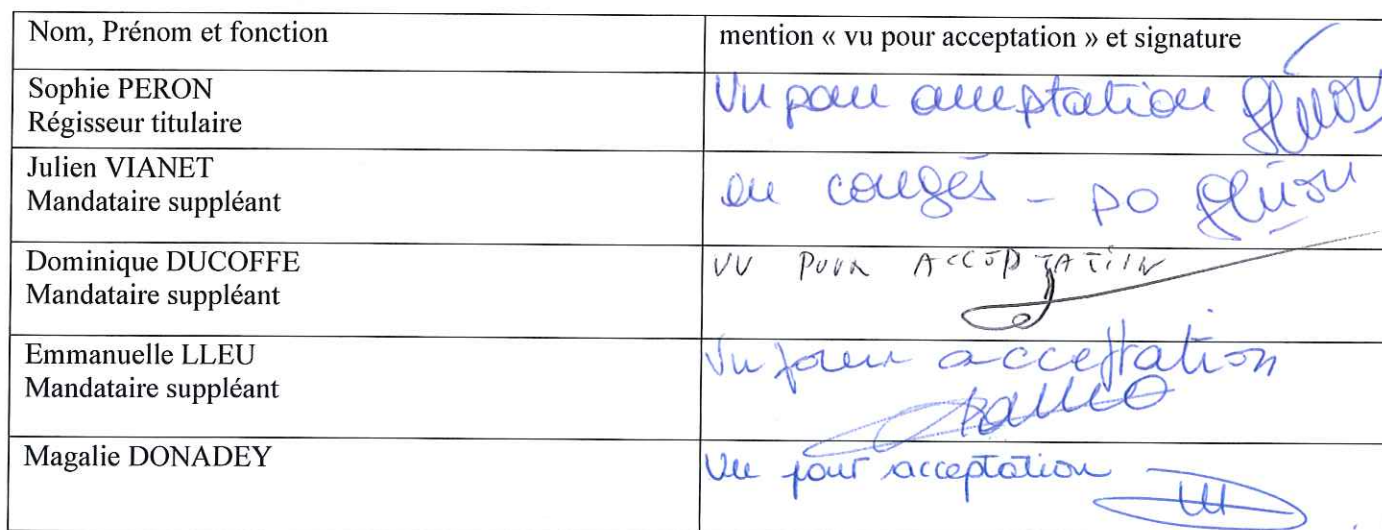 Nom, Prénom et fonction
mention « vu pour acceptation » et signature
Sophie PERON
Régisseur titulaire
Vu pour acceptation
Julien VIANET
Mandataire suppléant
en congés - po
Dominique DUCOFFE
Mandataire suppléant
VU POUR ACCEPTATION
Emmanuelle LLEU
Mandataire suppléant
Vu pour acceptation
Magalie DONADEY
Vu pour acceptation